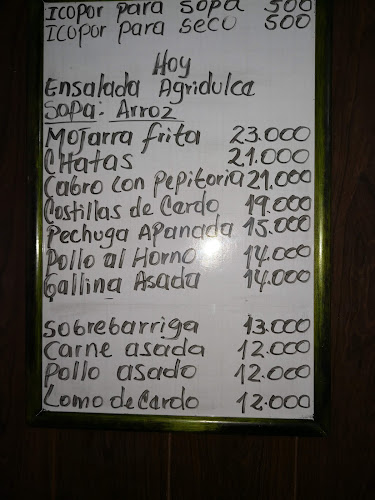 Icopor para sopa 500
Icopor para seco 500
Hoy
Ensalada Agridulce
Sopa: Arroz
Mojarra frita 23.000
CHatas 21.000
Cabro con pepitoria 21.000
Costillas de Cerdo 19.000
Pechuga Apanada 15.000
Pollo al Horno 14.000
Gallina Asada 14.000
sobrebarriga 13.000
Carne asada 12.000
Pollo asado 12.000
Lomo de Cerdo 12.000